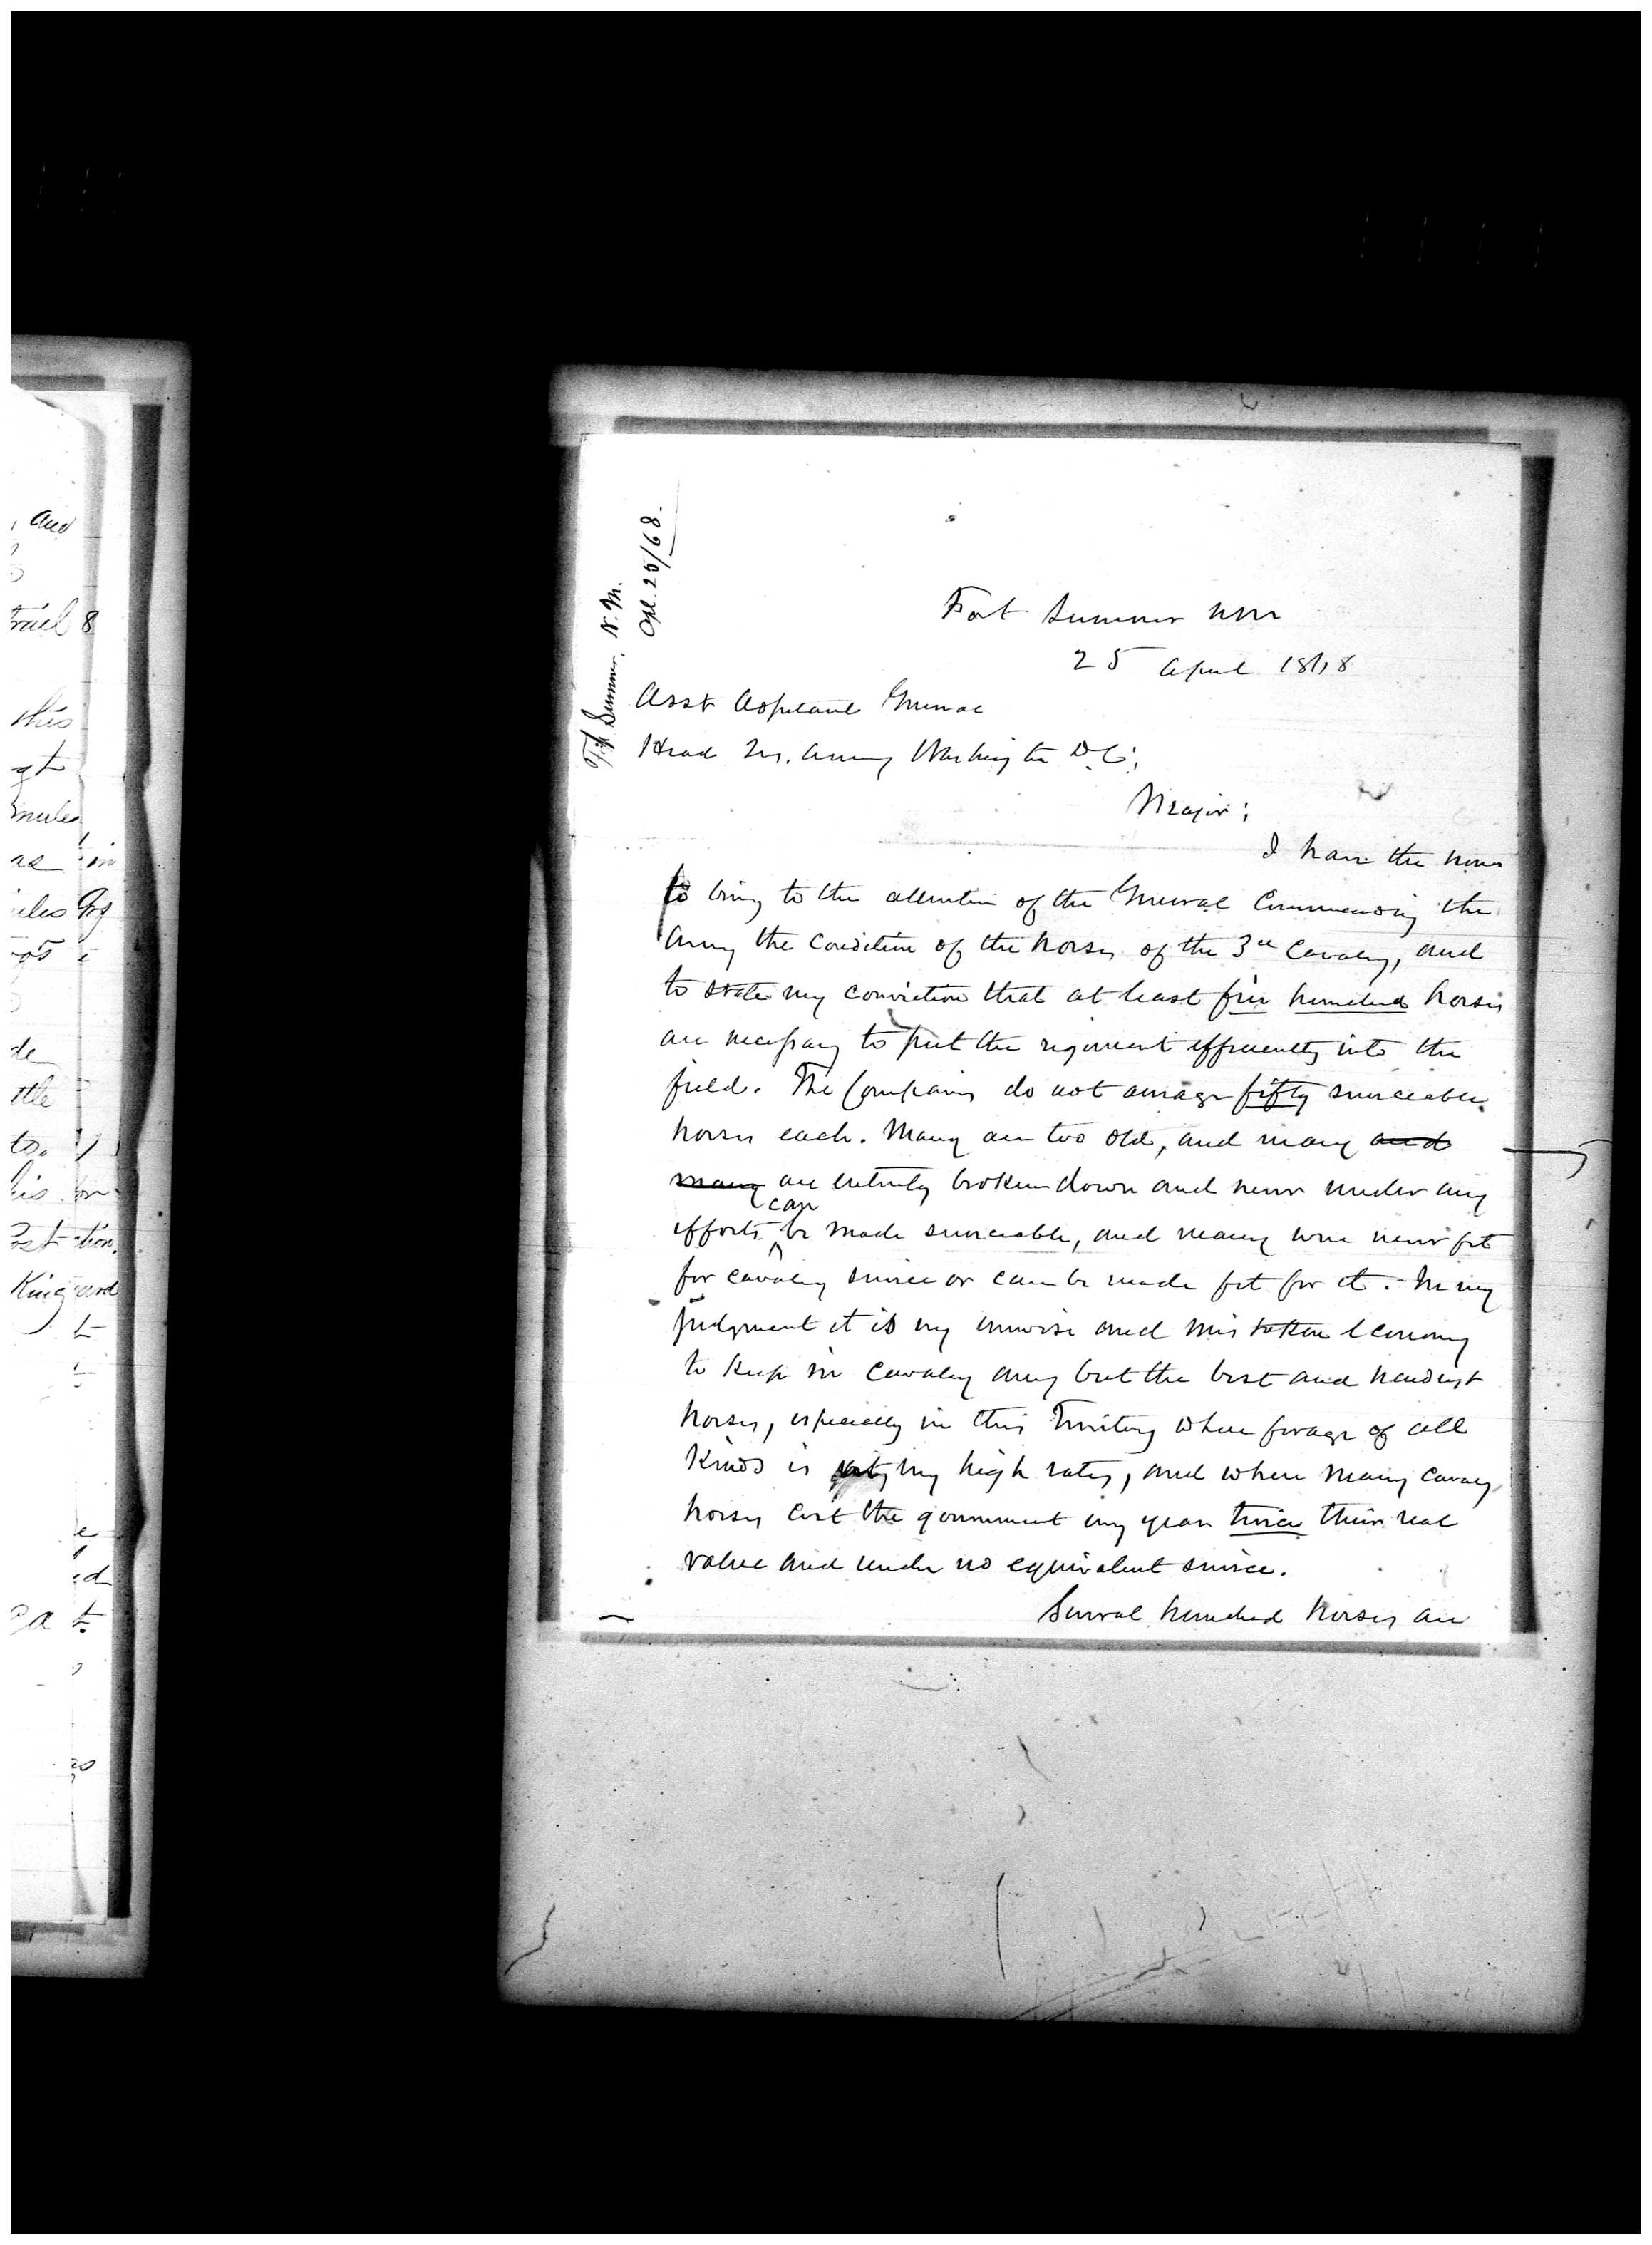 Ft. Sumner, N.M.
Apl. 25/68.
Fort Sumner NM
25 April 1868
Asst Adjutant General
Head Qrs. Army Washington D.C.;
Major;
I have the honor
to bring to the attention of the General Commanding the
Army the condition of the horses of the 3rd Cavalry, and
to state my conviction that at least five hundred horses
are necessary to put the regiment efficiently into the
field. The Companies do not average fifty serviceable
horses each. Many are too old, and many and
many are entirely broken down and never under any
efforts can be made serviceable, and many were never fit
for cavalry service or can be made fit for it. In my
judgment it is very unwise and mistaken economy
to keep in cavalry any but the best and hardiest
horses, especially in this Territory where forage of all
kinds is at very high rates, and where many cavalry
horses cost the government every year twice their real
value and render no equivalent service.
Several hundred horses are
and
8
this
mules
as in
de
ttle
to.
King and